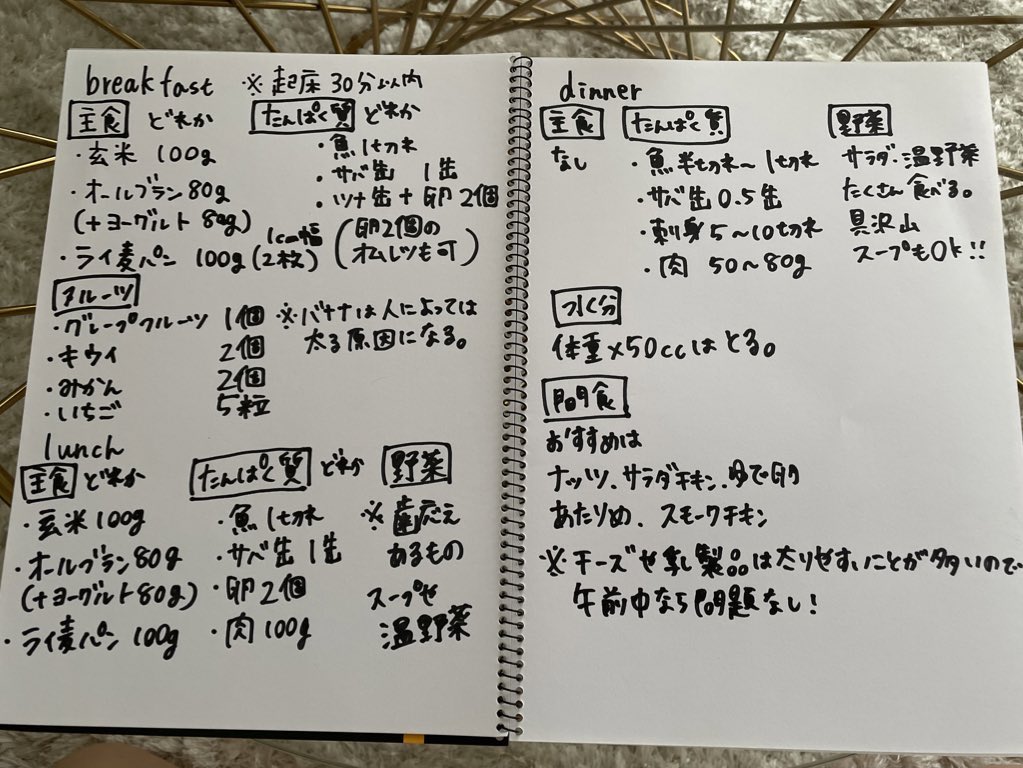 breakfast ※起床30分以内
主食 どれか
・玄米 100g
・オールブラン 80g
(+ヨーグルト 80g)
・ライ麦パン 100g(2枚)
1cm幅
たんぱく質 どれか
・魚 1切れ
・サバ缶 1缶
・ツナ缶+卵2個
(卵2個の
オムレツも可)
フルーツ
・グレープフルーツ 1個
・キウイ 2個
・みかん 2個
・いちご 5粒
※バナナは人によっては
太る原因になる。
lunch
主食 どれか
・玄米 100g
・オールブラン 80g
(+ヨーグルト80g)
・ライ麦パン 100g
たんぱく質 どれか
・魚 1切れ
・サバ缶 1缶
・卵2個
・肉 100g
野菜
※歯応え
あるもの
スープや
温野菜
dinner
主食
なし
たんぱく質
・魚半切れ〜1切れ
・サバ缶 0.5缶
・刺身 5〜10切れ
・肉 50〜80g
野菜
サラダ・温野菜
たくさん食べる。
具沢山
スープもOK!!
水分
体重×50ccはとる。
間食
おすすめは
ナッツ、サラダチキン、ゆで卵
あたりめ、スモークチキン
※チーズや乳製品は太りやすいことが多いので
午前中なら問題なし!